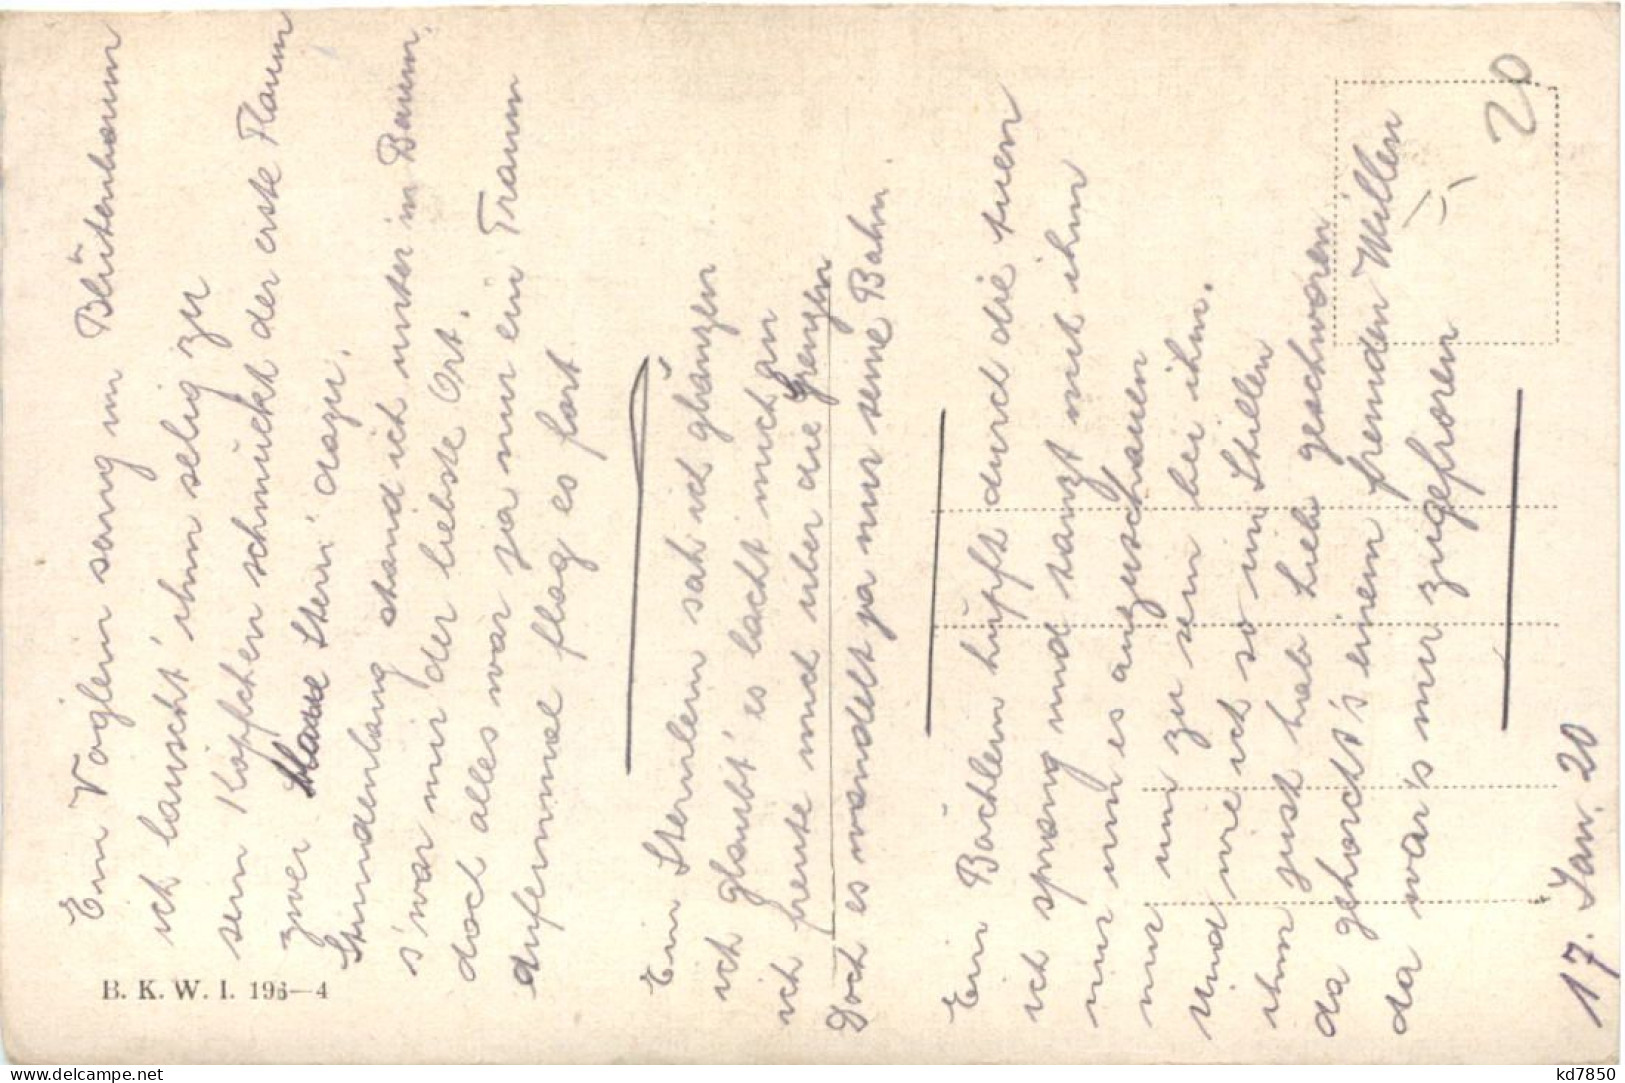 Ein Vöglein sang im Blütenbaum
ich lauscht' ihm selig zu
sein Köpfchen schmückt der erste Flaum
zwei blaue Stern' dazu.
Stundenlang stand ich unter'm Baum
s'war mir der liebste Ort.
doch alles war ja nur ein Traum
aufeinmal flog es fort.
Ein Sternlein sah ich glänzen
ich glaubt' es lacht mich an
ich freute mich über die Grenzen
Doch es wandelt ja nur seine Bahn
Ein Bächlein hüpft durch die
ich sprang und tanzt mit ihm
nur um es anzuschauen
nur um zu sein bei ihm.
Und wie ich so im Stillen
ihm just hab Lieb geschworen
da gehorcht's einem fremden Willen
da war's nur zugefroren
17. Jan. 20
20
B. K. W. I. 196—4
kd7850
delcampe.net